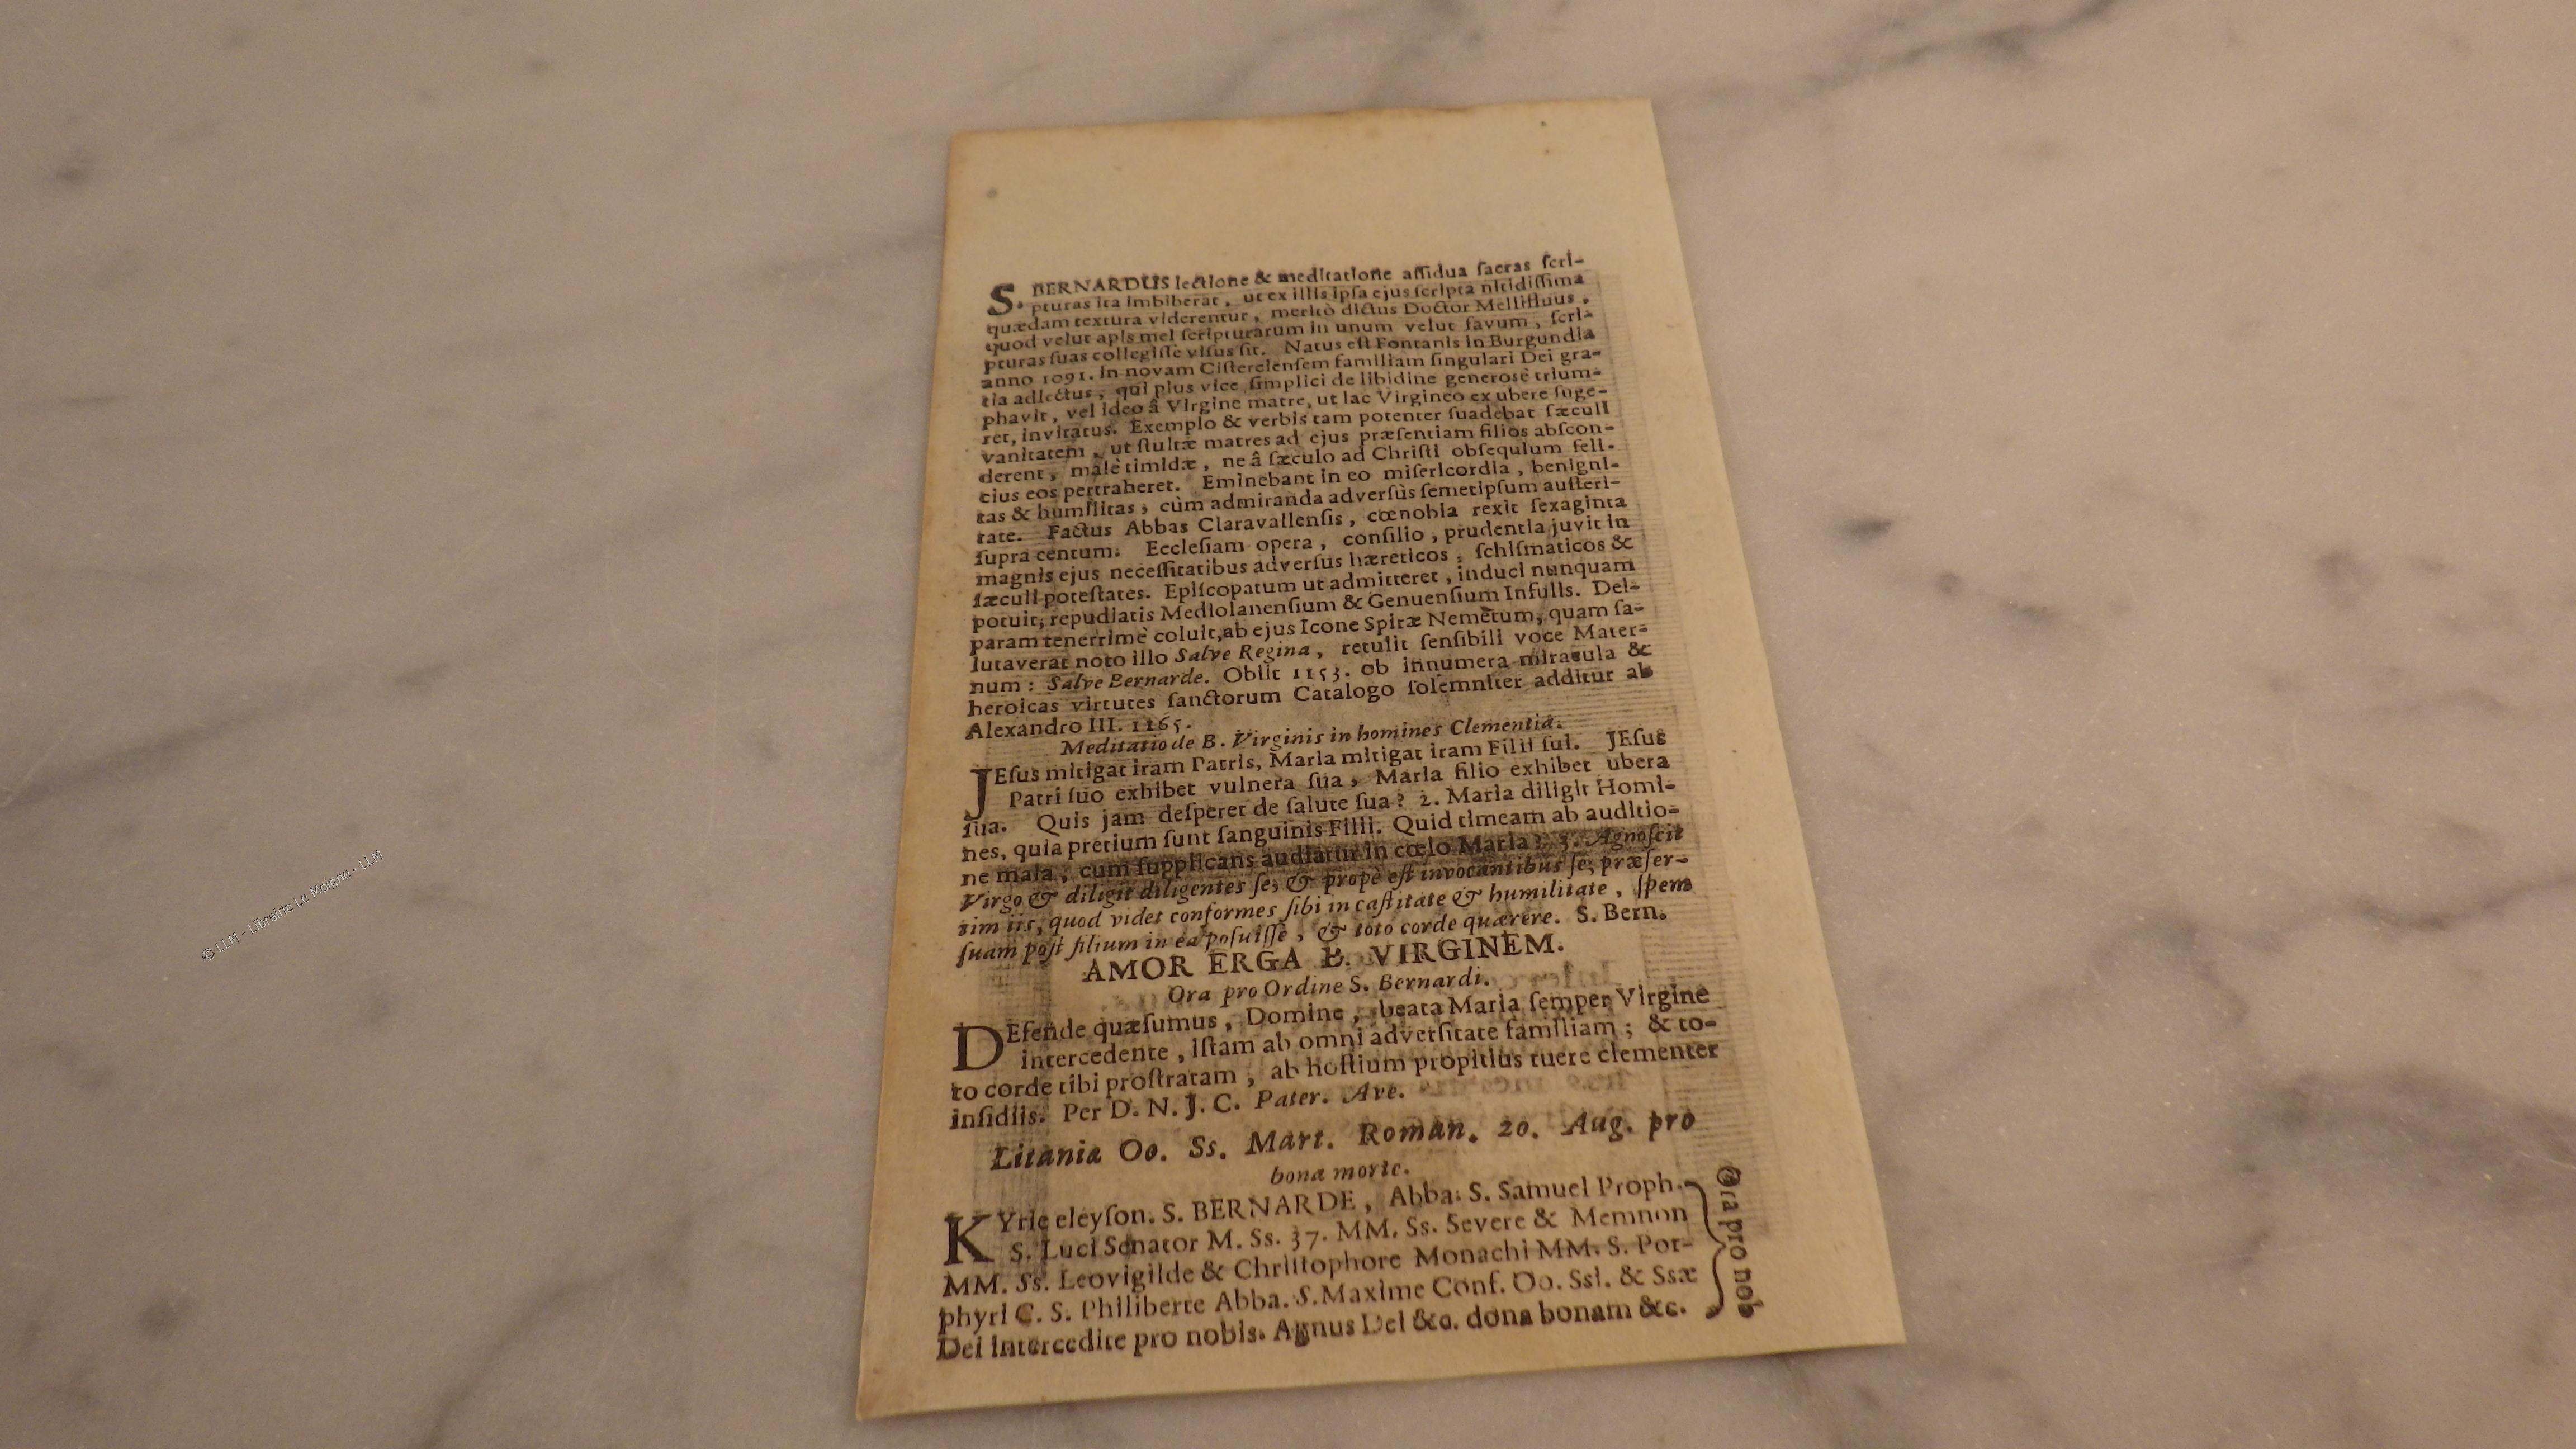 S. BERNARDUS lectione & meditatione assidua sacras scri-
pturas ita imbiberat, ut ex illis ipsa ejus scripta nitidissima
quædam textura viderentur, meritò dictus Doctor Mellifluus,
quod velut apis mel scripturarum in unum velut favum, scri-
pturas suas collegisse visus sit. Natus est Fontanis in Burgundia
anno 1091. In novam Cisterciensem familiam singulari Dei gra-
tia adlectus, qui plus vice simplici de libidine generosè trium-
phavit, vel ideo â Virgine matre, ut lac Virgineo ex ubere suge-
ret, invitatus. Exemplo & verbis tam potenter suadebat sæculi
vanitatem, ut stultæ matres ad ejus præsentiam filios abscon-
derent, malè timidæ, ne â sæculo ad Christi obsequium feli-
cius eos pertraheret. Eminebant in eo misericordia, benigni-
tas & humilitas, cùm admiranda adversùs semetipsum austeri-
tate. Factus Abbas Claravallensis, cœnobia rexit sexaginta
supra centum. Ecclesiam opera, consilio, prudentia juvit in
magnis ejus necessitatibus adversus hæreticos, schismaticos &
sæculi potestates. Episcopatum ut admitteret, induci nunquam
potuit, repudiatis Mediolanensium & Genuensium Infulis. Dei-
param tenerrimè coluit, ab ejus Icone Spiræ Nemetum, quam sa-
lutaverat noto illo Salve Regina, retulit sensibili voce Mater-
num: Salve Bernarde. Obiit 1153. ob innumera miracula &
heroicas virtutes sanctorum Catalogo solemniter additur ab
Alexandro III. 1165.
Meditatio de B. Virginis in homines Clementiâ.
JEsus mitigat iram Patris, Maria mitigat iram Filii sui. JEsus
Patri suo exhibet vulnera sua, Maria filio exhibet ubera
sua. Quis jam desperet de salute sua? 2. Maria diligit Homi-
nes, quia pretium sunt sanguinis Filii. Quid timeam ab auditio-
ne mala, cum supplicans audiatur in cœlo Maria? 3. Agnoscit
Virgo & diligit diligentes se, & propè est invocantibus se, præser-
tim iis, quod videt conformes sibi in castitate & humilitate, spem
suam post filium in ea posuisse, & toto corde quærere. S. Bern.
AMOR ERGA B. VIRGINEM.
Ora pro Ordine S. Bernardi.
DEfende quæsumus, Domine, beata Maria semper Virgine
intercedente, istam ab omni adversitate familiam; & to-
to corde tibi prostratam, ab hostium propitius tuere clementer
insidiis. Per D. N. J. C. Pater. Ave.
Litania Oo. Ss. Mart. Roman. 20. Aug. pro
bona morte.
KYrie eleyson. S. BERNARDE, Abba. S. Samuel Proph.
S. Luci Senator M. Ss. 37. MM. Ss. Severe & Memnon
MM. Ss. Leovigilde & Christophore Monachi MM. S. Por-
phyri C. S. Philiberte Abba. S. Maxime Conf. Oo. Ssi. & Ssæ
Dei intercedite pro nobis. Agnus Dei &c. dona bonam &c.
Ora pro nob
© LLM - Librairie Le Moigne - LLM